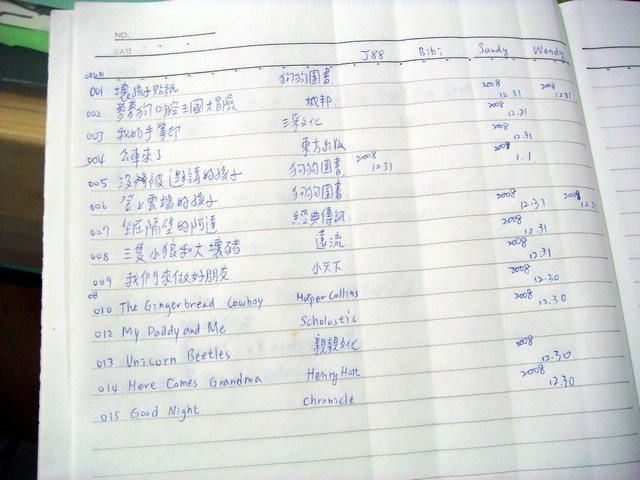 NO.
DATE
J88 Bibi Sandy Wendy
001 壞孩子貼紙 狗狗圖書 2008 12.31 2008 12.31
002 麥麥狗口腔王國大冒險 城邦 2008 12.31
003 我的手掌印 三采文化 2008 12.31
004 公車來了 東方出版 2009 1.1.
005 沒有被邀請的孩子 狗狗圖書 2008 12.31
006 登上雲端的孩子 狗狗圖書 2008 12.31 2008 12.31
007 坐在隔壁的阿達 經典傳訊 2008 12.31
008 三隻小狼和大壞豬 遠流 2008 12.31
009 我們來做好朋友 小天下 2008 12.30
010 The Gingerbread Cowboy HarperCollins 2008 12.30
012 My Daddy and Me Scholastic
013 Unicorn Beetles 親親文化 2008 12.30
014 Here Comes Grandma Henry Holt 2008 12.30
015 Good Night Chronicle